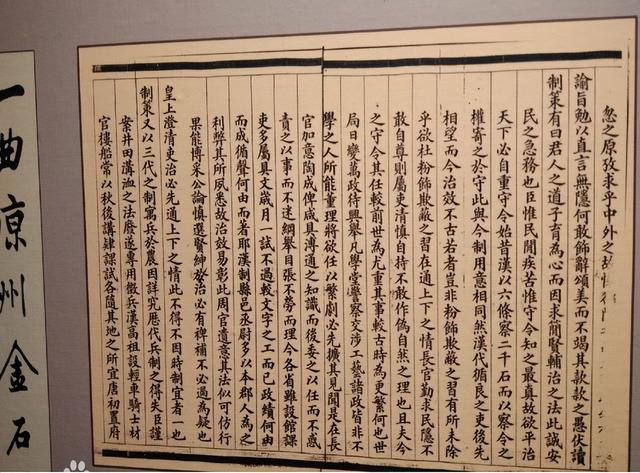 忽之原攷求乎中外之故
諭旨勉以直言無隱何敢飾辭頌美而不竭其款款之愚伏讀
制策有曰君人之道子育為心而因求簡賢輔治之法此誠安
民之急務也臣惟民間疾苦惟守令知之最真故欲平治
天下必自重守令始昔漢以六條察二千石而以察令之
權寄之於守此與今制用意相同然漢代循良之吏後先
相望而今治效不古若者豈非粉飾欺蔽之習有所未除
乎欲杜粉飾欺蔽之習在通上下之情長官勤求民隱不
敢自尊則屬吏清慎自持不敢作偽自然之理也且夫今
之守令其任較前世為尤重其事較古時為更繁何也世
局日變萬政待興舉凡學堂警察交涉工藝諸政皆非不
學之人所能董理將欲任以繁劇必先擴其見聞是在長
官加意陶成俾咸具溥通之知識而後委之以任而不惑
責之以事而不迷綱舉目張不勞而理今各省雖設館課
吏多屬具文歲月一試不過較文字之工而已政績何由
而成循聲何由而者耶漢制縣邑丞尉多以本郡人為之
利弊其所夙悉故治效易彰此周官遺意其法似可仿行
果能博采公論慎選賢紳於治必有裨補不必過為疑也
皇上澄清吏治必先通上下之情此不得不因時制宜者一也
制策又以三代之制寓兵於農因詳究歷代兵制之得失臣謹
案井田溝洫之法廢遂專用徵兵漢高祖設輕車騎士材
官樓船常以秋後講肄課試各隨其地之所宜唐初置府
一曲凉州金石